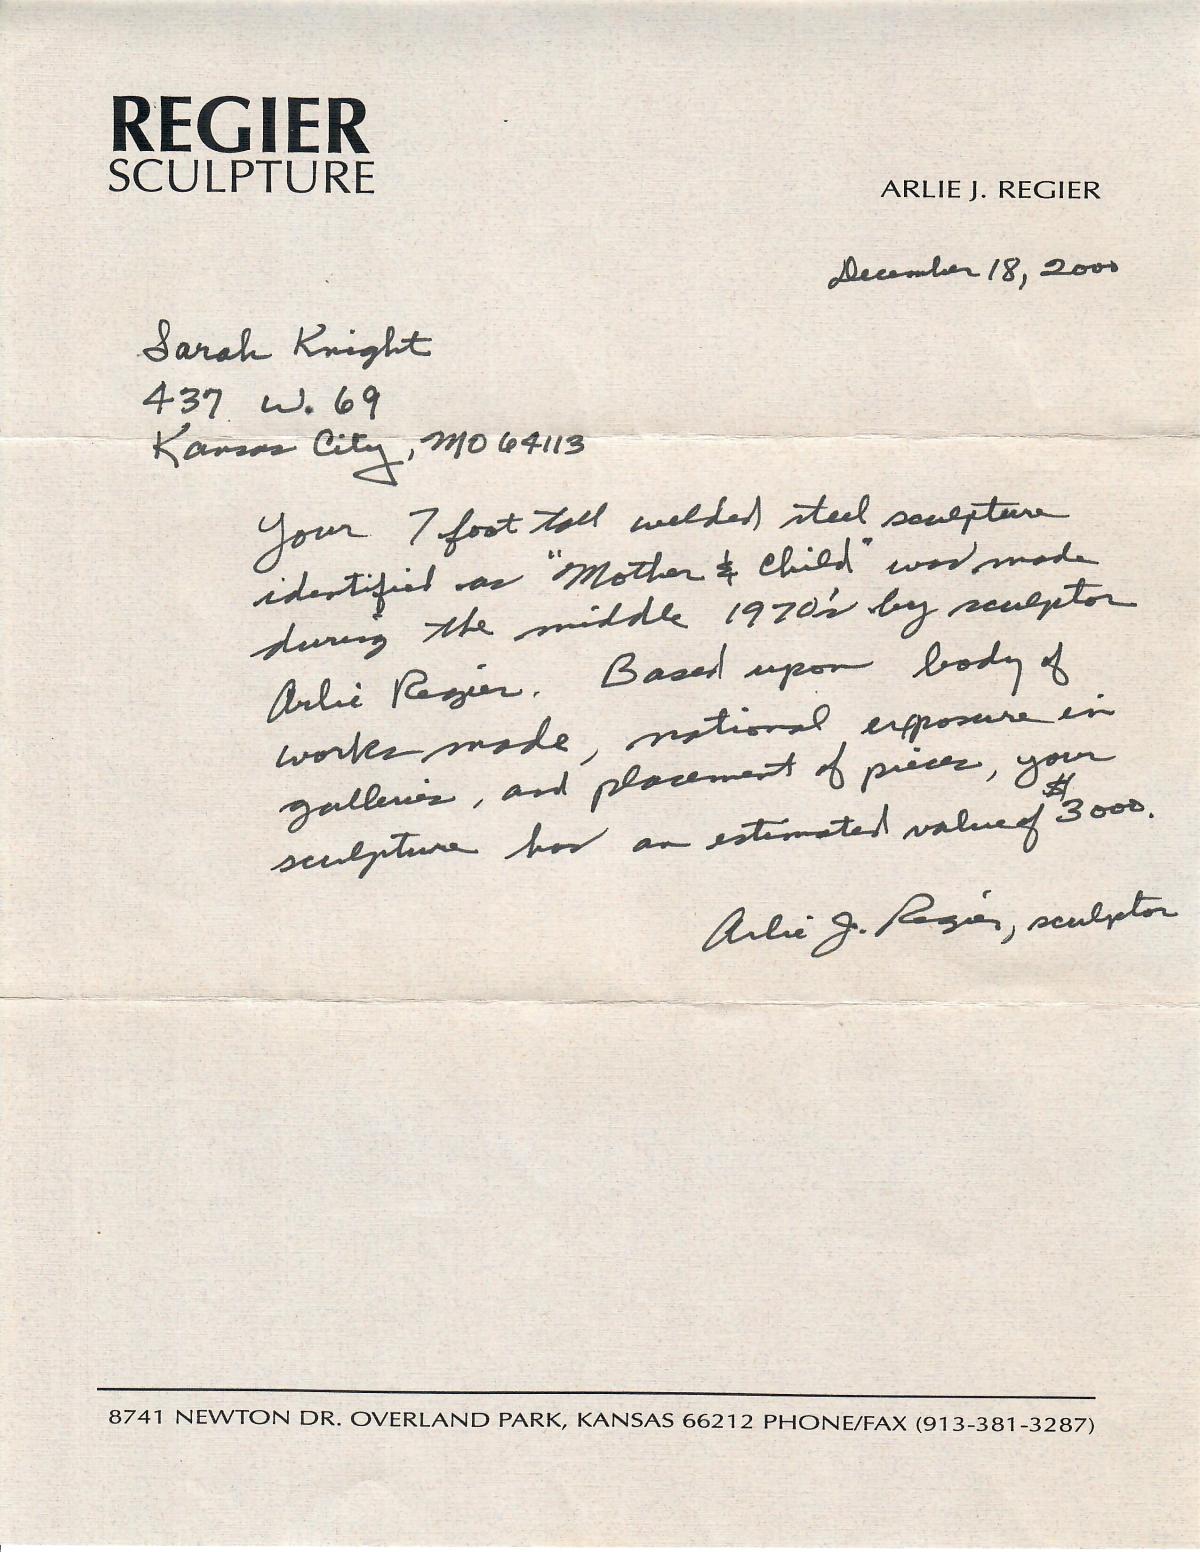 REGIER
SCULPTURE
ARLIE J. REGIER
December 18, 2000
Sarah Knight
437 W. 69
Kansas City, MO 64113
Your 7 foot tall welded steel sculpture
identified as "Mother & Child" was made
during the middle 1970's by sculptor
Arlie Regier. Based upon body of
works made, national exposure in
galleries, and placement of pieces, your
sculpture has an estimated value of $3000.
Arlie J. Regier, sculptor
8741 NEWTON DR. OVERLAND PARK, KANSAS 66212 PHONE/FAX (913-381-3287)